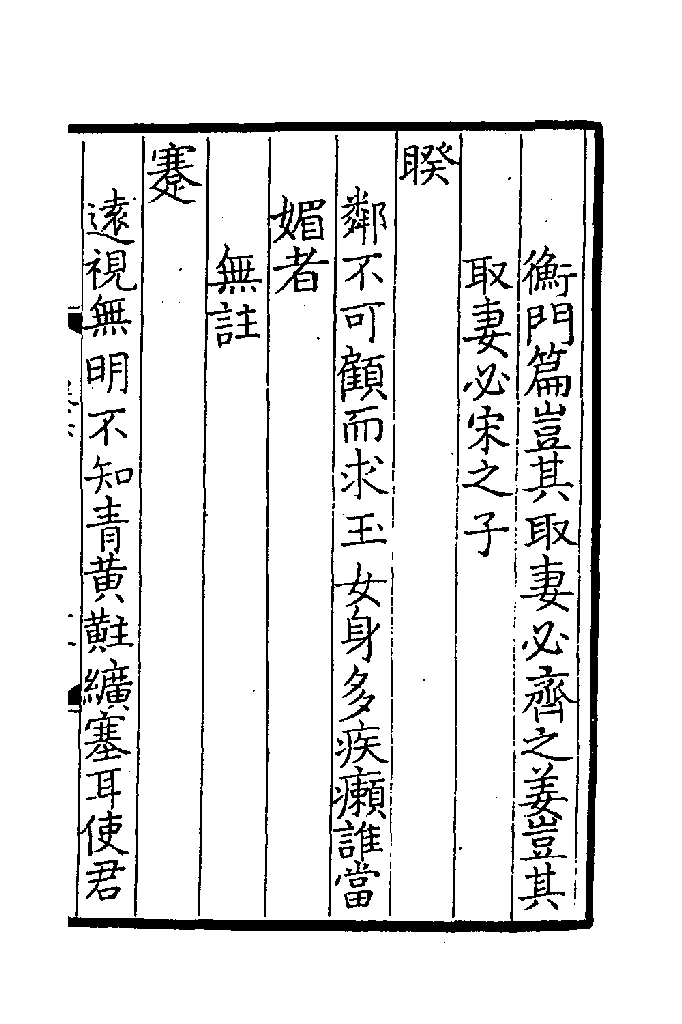 衡門篇豈其取妻必齊之姜豈其
取妻必宋之子
睽
鄰不可顧而求玉女身多疾癩誰當
媚者
無註
蹇
遠視無明不知青黄黈纊塞耳使君